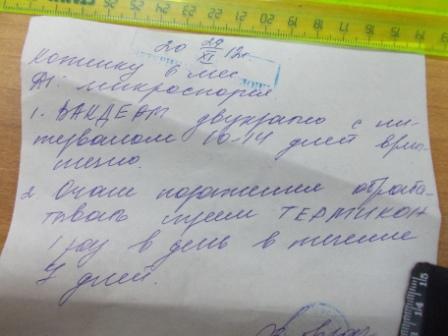 20 29/XI 12г
Котику 6 мес
Dт: микроспория
1. ВАКДЕРМ двукратно с ин-
тервалом 10-14 дней внутри-
мышечно.
2. Очаги поражения обраба-
тывать спреем ТЕРМИКОН
1 раз в день в течение
7 дней.
15